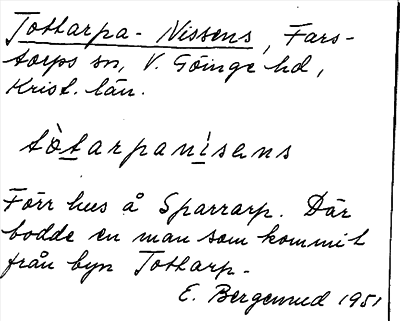 Tottarpa- Nissens, Fars-
torps sn, V. Göinge hd,
Krist. län.
tòtarpanisens
Förr hus å Sparrarp. Där
bodde en man som kommit
från byn Tottarp.
E. Bergenrud 1951